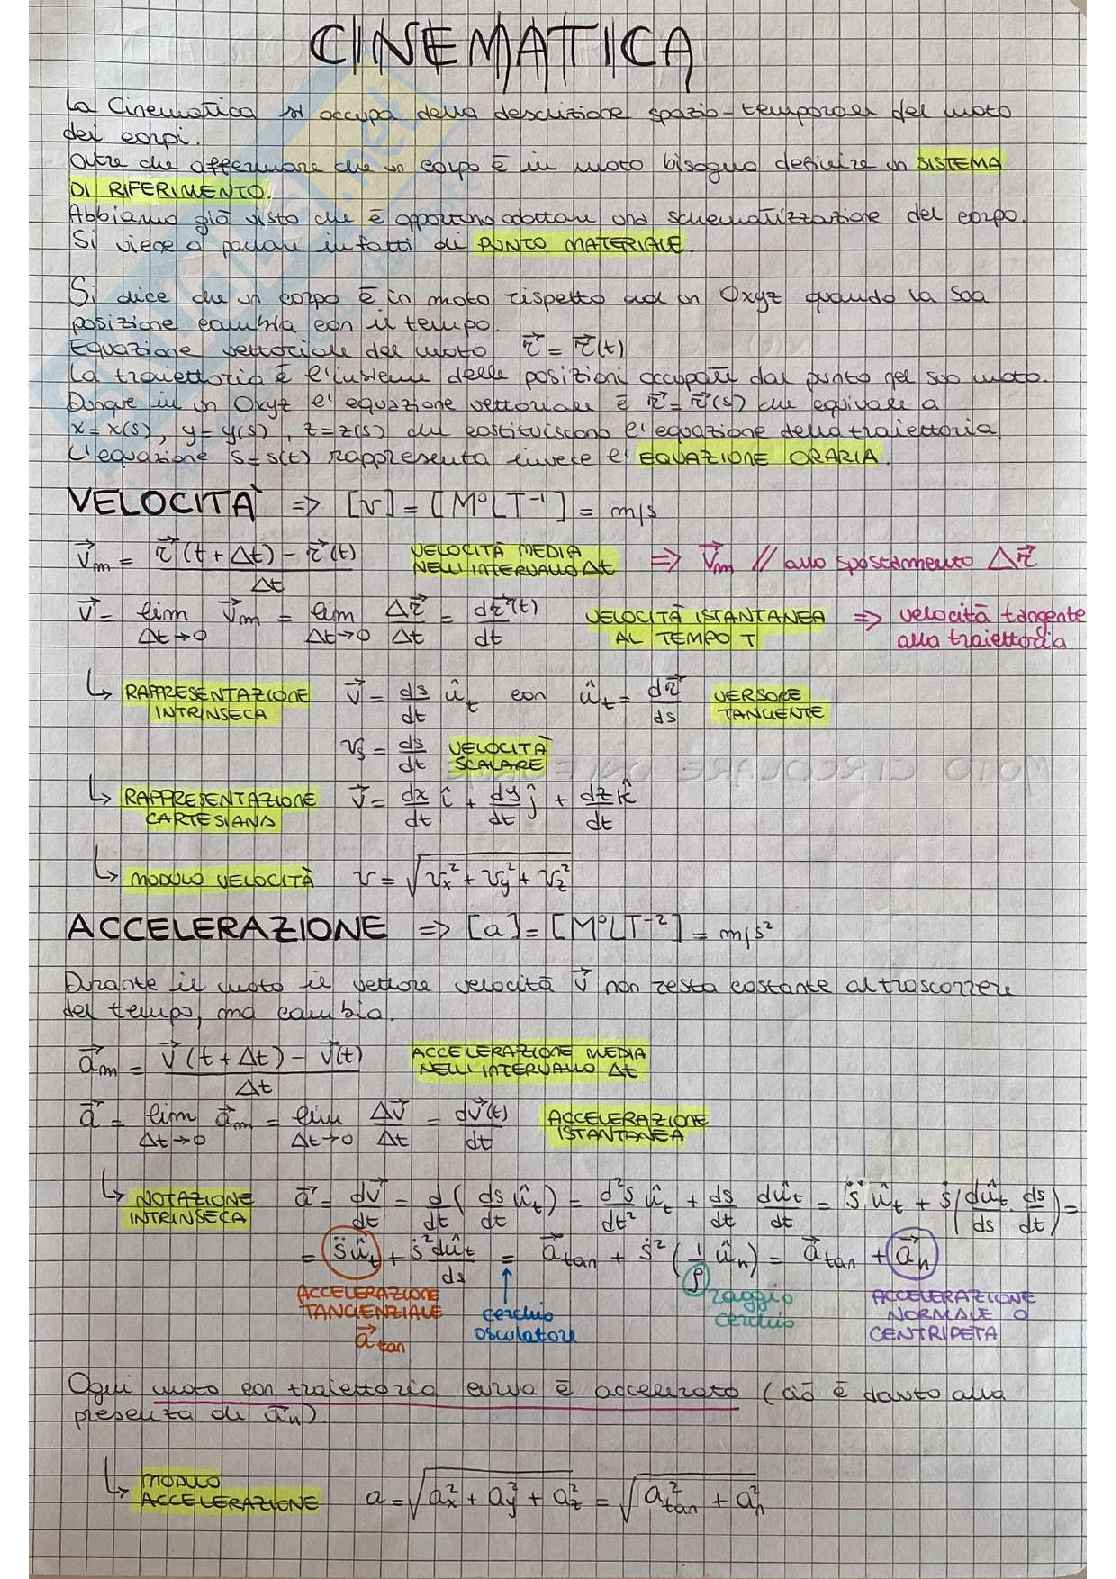 CINEMATICA
La Cinematica si occupa della descrizione spazio-temporale del moto
dei corpi.
Oltre che affermare che un corpo è in moto bisogna definire un SISTEMA
DI RIFERIMENTO.
Abbiamo già visto che è opportuno adottare una schematizzazione del corpo.
Si viene a parlare infatti di PUNTO MATERIALE.
Si dice che un corpo è in moto rispetto ad un Oxyz quando la sua
posizione cambia con il tempo.
Equazione vettoriale del moto r⃗ = r⃗(t)
La traiettoria è l'insieme delle posizioni occupate dal punto nel suo moto.
Dunque in un Oxyz l'equazione vettoriale è r⃗ = r⃗(s) che equivale a
x = x(s), y = y(s), z = z(s) che costituiscono l'equazione della traiettoria
L'equazione s = s(t) rappresenta invece l'EQUAZIONE ORARIA.
VELOCITÀ => [v] = [M⁰LT⁻¹] = m/s
v⃗m = r⃗(t + Δt) - r⃗(t) / Δt VELOCITÀ MEDIA NELL'INTERVALLO Δt => v⃗m // allo spostamento Δr⃗
v⃗ = lim Δt→0 v⃗m = lim Δt→0 Δr⃗/Δt = dr⃗(t)/dt VELOCITÀ ISTANTANEA AL TEMPO T => velocità tangente alla traiettoria
↳ RAPPRESENTAZIONE INTRINSECA v⃗ = ds/dt û_t con û_t = dr⃗/ds VERSORE TANGENTE
v_s = ds/dt VELOCITÀ SCALARE
↳ RAPPRESENTAZIONE CARTESIANA v⃗ = dx/dt î + dy/dt ĵ + dz/dt k̂
↳ MODULO VELOCITÀ v = √(v_x² + v_y² + v_z²)
ACCELERAZIONE => [a] = [M⁰LT⁻²] = m/s²
Durante il moto il vettore velocità v⃗ non resta costante al trascorrere
del tempo, ma cambia.
a⃗m = v⃗(t + Δt) - v⃗(t) / Δt ACCELERAZIONE MEDIA NELL'INTERVALLO Δt
a⃗ = lim Δt→0 a⃗m = lim Δt→0 Δv⃗/Δt = dv⃗(t)/dt ACCELERAZIONE ISTANTANEA
↳ NOTAZIONE INTRINSECA a⃗ = dv⃗/dt = d/dt (ds/dt û_t) = d²s/dt² û_t + ds/dt dû_t/dt = s̈ û_t + ṡ (dû_t/ds · ds/dt) =
= s̈ û_t + ṡ² dû_t/ds = a⃗_tan + ṡ² (1/ρ û_n) = a⃗_tan + a⃗_n
ACCELERAZIONE TANGENZIALE a⃗_tan
cerchio osculatore
raggio cerchio
ACCELERAZIONE NORMALE O CENTRIPETA
Ogni moto con traiettoria curva è accelerato (ciò è dovuto alla
presenza di a⃗_n).
↳ MODULO ACCELERAZIONE a = √(a_x² + a_y² + a_z²) = √(a²_tan + a²_n)